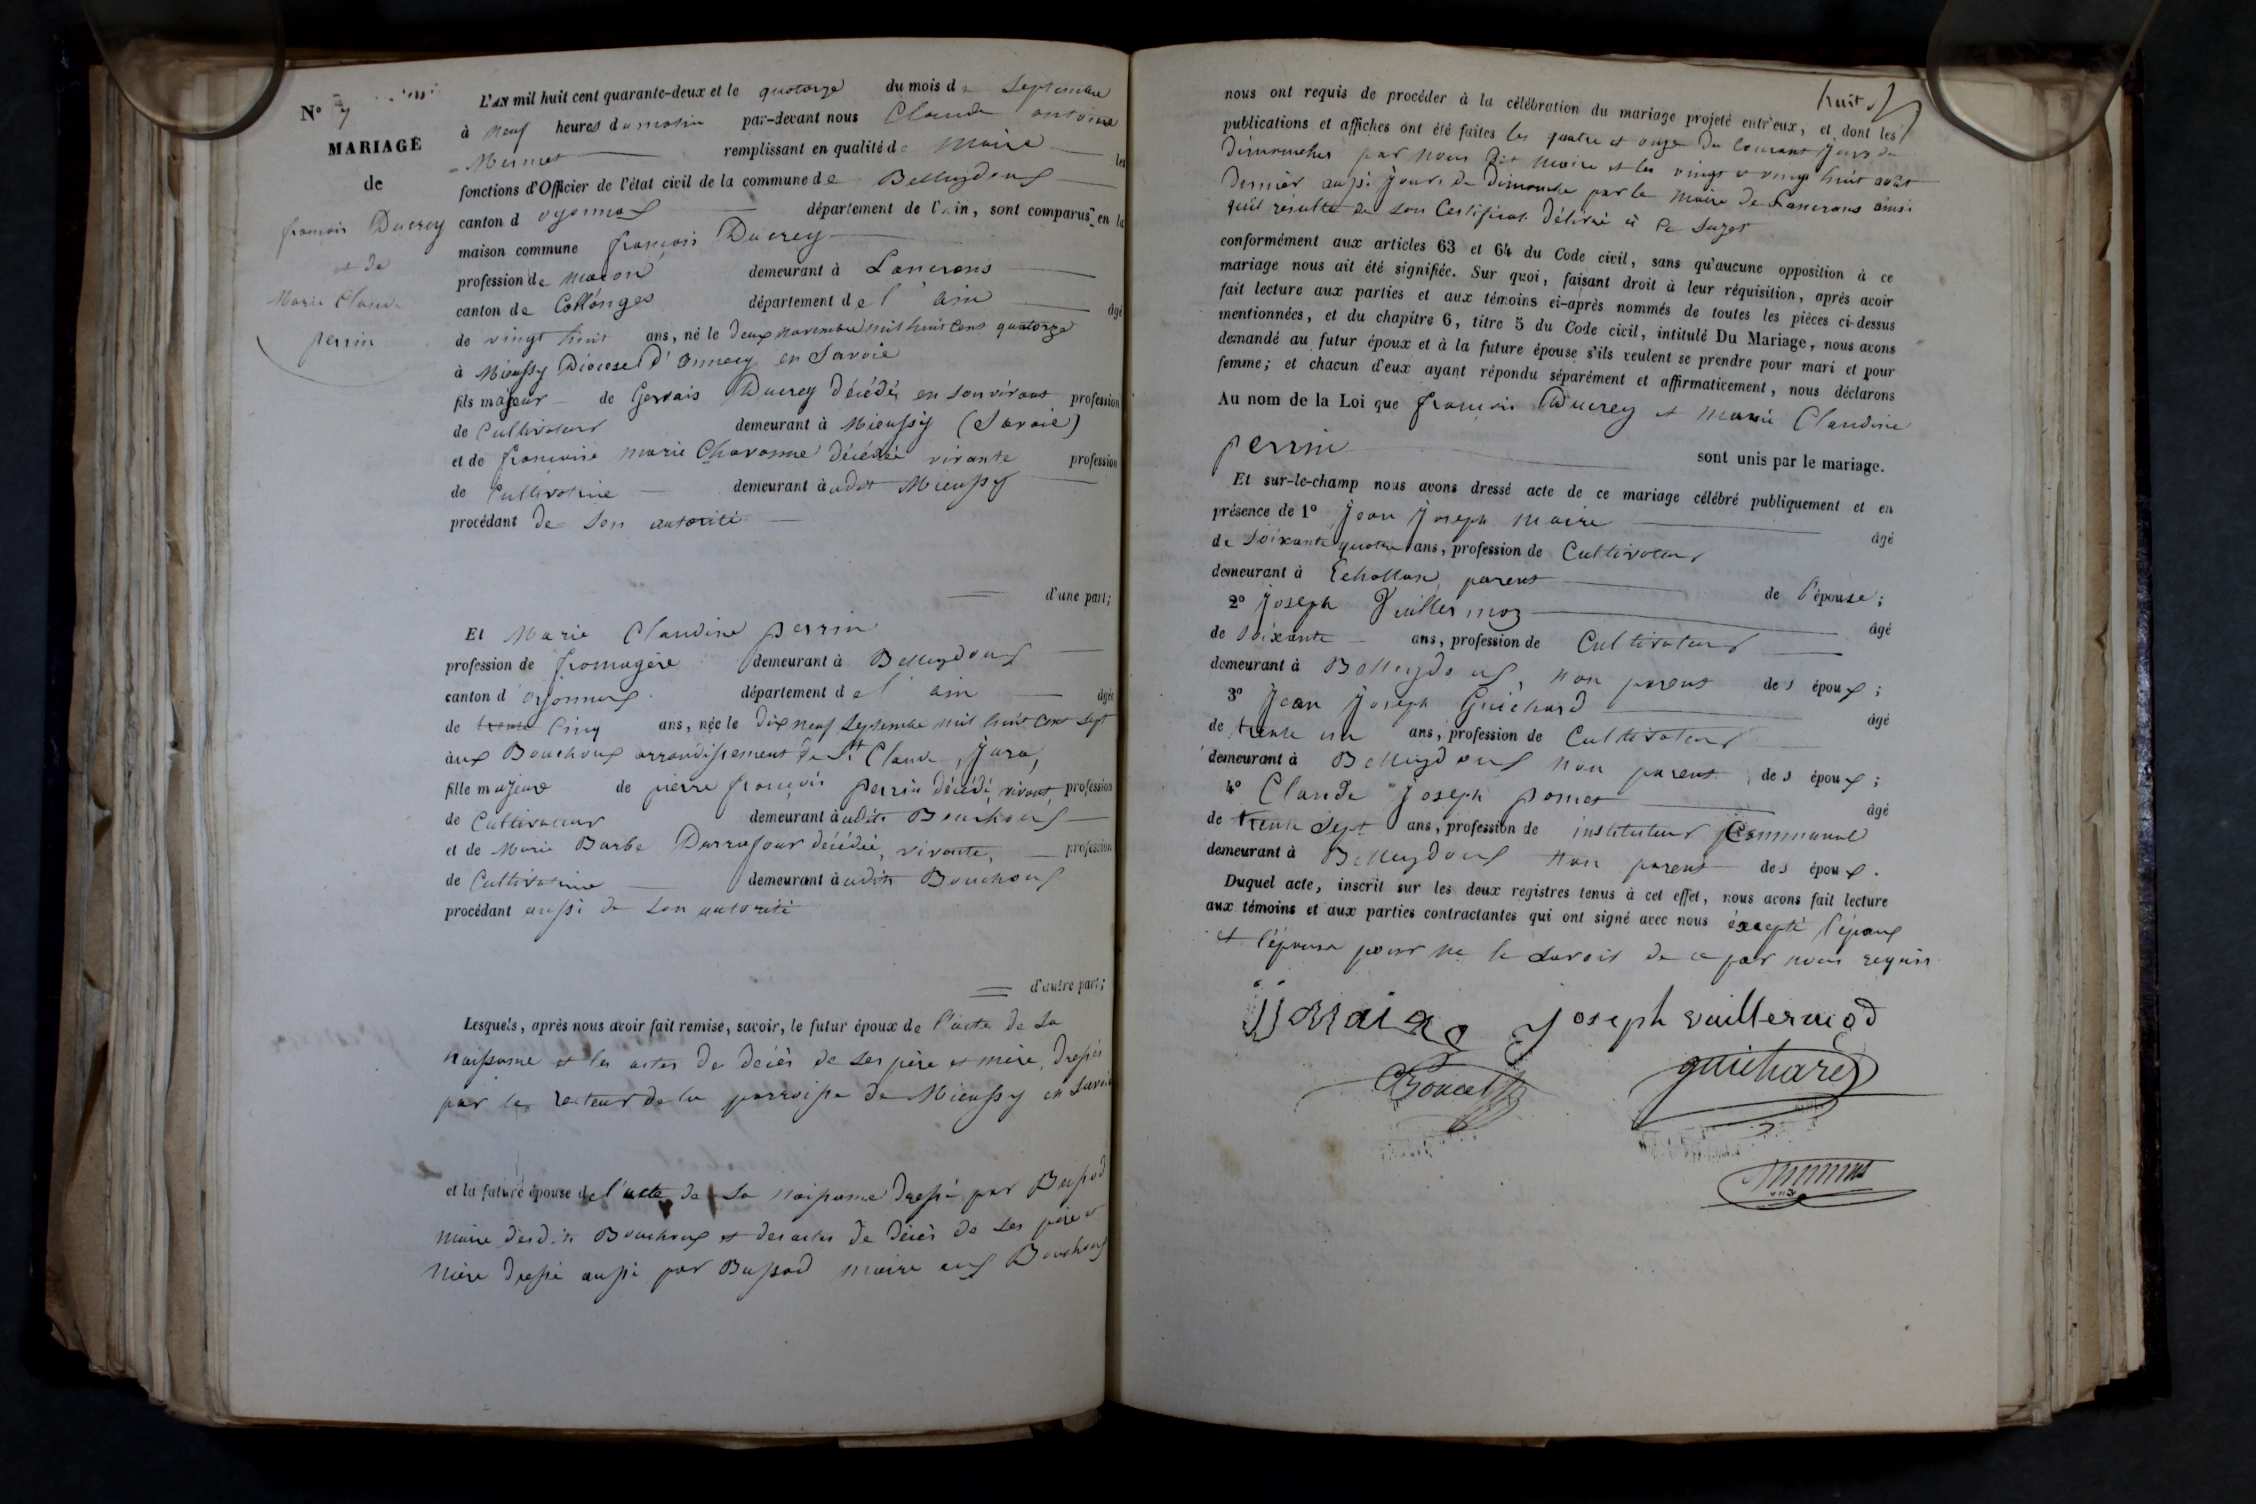 N° 7
MARIAGE
de
françois Ducrey
et de
Marie Claudine
perrin
L'AN mil huit cent quarante-deux et le quatorze du mois de Septembre
à neuf heures du matin par-devant nous Claude antoine
Mermet remplissant en qualité de Maire les
fonctions d'Officier de l'état civil de la commune de Belleydoux
canton d'oyonnax département de l'Ain, sont comparus en la
maison commune françois Ducrey
profession de Maçon demeurant à Lancrans
canton de Collonges département de l'ain âgé
de vingt huit ans, né le deux novembre mil huit cent quatorze
à Mieussy Diocese d'annecy en Savoie
fils majeur de Gervais Ducrey décédé en son vivant profession
de Cultivateur demeurant à Mieussy (Savoie)
et de françoise marie Chavanne décédée vivante profession
de Cultivatrice demeurant à udit Mieussy
procédant de son autorité
d'une part;
Et Marie Claudine perrin
profession de fromagère demeurant à Belleydoux
canton d'oyonnax département de l'ain âgée
de trente cinq ans, née le dix neuf Septembre mil huit cent sept
aux Bouchoux arrondissement de St Claude, Jura,
fille majeure de pierre françois perrin décédé, vivant, profession
de Cultivateur demeurant à udits Bouchoux
et de Marie Barbe décédée, vivante, profession
de Cultivatrice demeurant à udits Bouchoux
procédant aussi de son autorité
d'autre part;
Lesquels, après nous avoir fait remise, savoir, le futur époux de l'acte de sa
naissance et les actes de décès de ses père et mère, dressés
par le recteur de la parroisse de Mieussy en Savoie
et la future épouse de l'acte de sa naissance dressé par Bussod
maire desdits Bouchoux et des actes de décès de ses père et
Mère dressé aussi par Bussod maire aux Bouchoux
huit
nous ont requis de procéder à la célébration du mariage projeté entr'eux, et dont les
publications et affiches ont été faites les quatre et onze du courant jours de
dimanches par nous dit maire et les vingt et vingt huit août
dernier aussi jours de dimanche par le maire de Lancrans ainsi
qu'il résulte de son Certificat délivré à ce sujet
conformément aux articles 63 et 64 du Code civil, sans qu'aucune opposition à ce
mariage nous ait été signifiée. Sur quoi, faisant droit à leur réquisition, après avoir
fait lecture aux parties et aux témoins ci-après nommés de toutes les pièces ci-dessus
mentionnées, et du chapitre 6, titre 5 du Code civil, intitulé Du Mariage, nous avons
demandé au futur époux et à la future épouse s'ils veulent se prendre pour mari et pour
femme; et chacun d'eux ayant répondu séparément et affirmativement, nous déclarons
Au nom de la Loi que françois Ducrey et Marie Claudine
perrin sont unis par le mariage.
Et sur-le-champ nous avons dressé acte de ce mariage célébré publiquement et en
présence de 1° Jean Joseph Maire âgé
de soixante quatre ans, profession de Cultivateur
demeurant à Echallon parent de l'épouse;
2° Joseph Vuillermoz âgé
de soixante ans, profession de Cultivateur
demeurant à Belleydoux, non parent des époux;
3° Jean Joseph Guichard âgé
de trente un ans, profession de Cultivateur
demeurant à Belleydoux non parent des époux;
4° Claude Joseph poncet âgé
de trente sept ans, profession de instituteur Communal
demeurant à Belleydoux non parent des époux.
Duquel acte, inscrit sur les deux registres tenus à cet effet, nous avons fait lecture
aux témoins et aux parties contractantes qui ont signé avec nous éxcepté l'époux
et l'épouse pour ne le savoir de ce par nous requis
jj Maire Joseph vuillermoz
Poncet guichard
Mermet